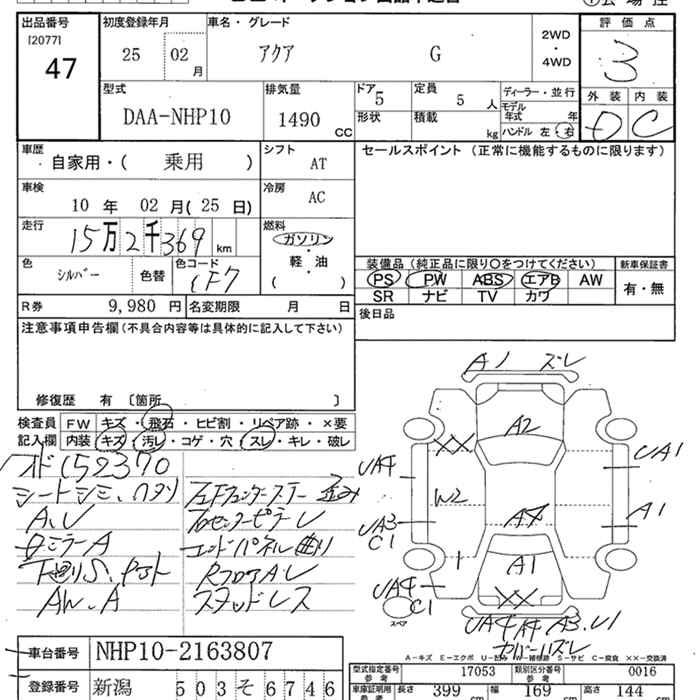 出品番号 初度登録年月 車名・グレード 評価点
[2077]
47 25 02月 アクア G 2WD・4WD 3
型式 排気量 ドア 5 定員 5人 ディーラー・並行 外装 内装
DAA-NHP10 1490cc 形状 積載 kg モデル年式 年 D C
ハンドル 左・右
車歴 自家用・( 乗用 ) シフト AT セールスポイント (正常に機能するものに限ります)
車検 10年 02月(25日) 冷房 AC
走行 15万2千369km 燃料 ガソリン・軽・油 ( )
色 シルバー 色替 色コード 1F7 装備品(純正品に限り〇をつけてください) 新車保証書
PS PW ABS エアB AW 有・無
SR ナビ TV カワ
R券 9,980円 名変期限 月 日 後日品
注意事項申告欄(不具合内容等は具体的に記入して下さい)
修復歴 有 〔箇所 〕
検査員記入欄 FW キズ・飛石・ヒビ割・リペア跡・×要
内装 キズ・汚レ・コゲ・穴・スレ・キレ・破レ
152370
シートシミ、ヘタリ
A、U
ミラーA
AW、A
センターピラーU
エンドパネル曲り
RフロアAU
スタッドレス
A1 ズレ
A2
XX
UA4
UA1
W2
A1
UA3
C1
A4
1
A1
UA4
C1
XX
スペア
UA4 A4 A3、U1
カバーズレ
A-キズ E-エクボ U-凹み W-補修跡 S-サビ C-腐食 XX-交換済
車台番号 NHP10-2163807
型式指定番号 参考 17053 類別区分番号 参考 0016
登録番号 新潟 503 そ 6746
車庫証明用 参考 長さ 399cm 幅 169cm 高さ 144cm